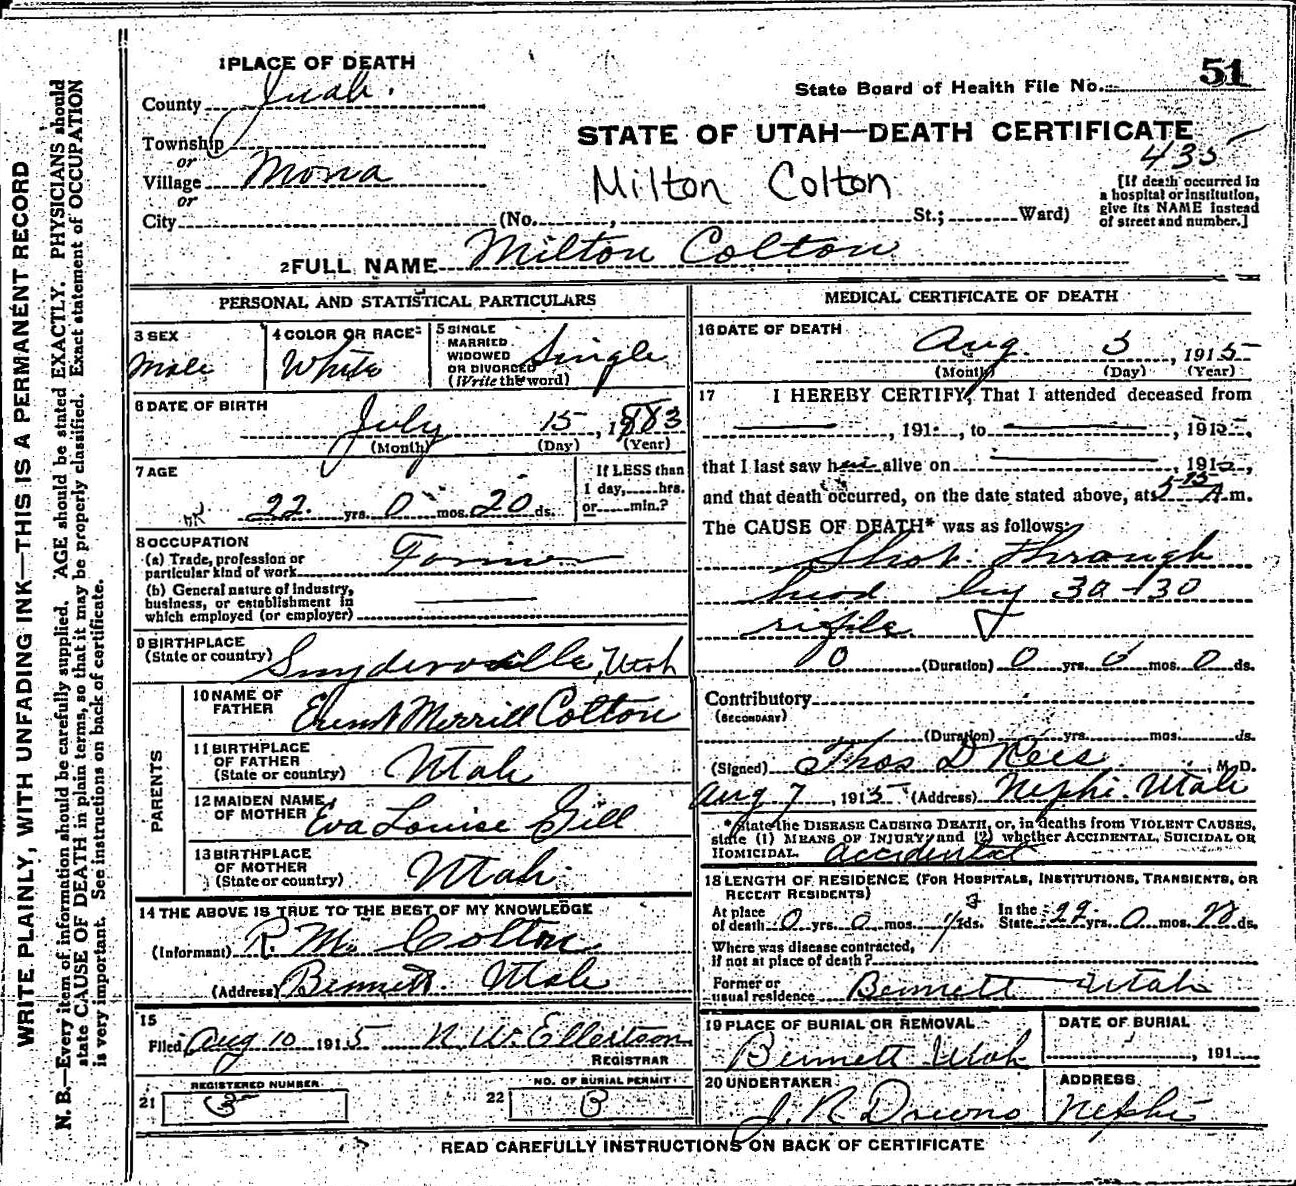 1 PLACE OF DEATH
County Juab.
Township
or
Village Mona
or
City
State Board of Health File No. 51
STATE OF UTAH—DEATH CERTIFICATE
435
Milton Colton
[If death occurred in
a hospital or institution,
give its NAME instead
of street and number.]
(No. , St.; Ward)
2 FULL NAME Milton Colton
PERSONAL AND STATISTICAL PARTICULARS
3 SEX
Male
4 COLOR OR RACE
White
5 SINGLE
MARRIED
WIDOWED
OR DIVORCED
(Write the word)
Single
6 DATE OF BIRTH
July 15, 1883
(Month) (Day) (Year)
7 AGE
22 yrs. 0 mos. 20 ds.
If LESS than
1 day, hrs.
or min.?
8 OCCUPATION
(a) Trade, profession or
particular kind of work
Farmer
(b) General nature of industry,
business, or establishment in
which employed (or employer)
9 BIRTHPLACE
(State or country) Snyderville, Utah
PARENTS
10 NAME OF
FATHER Merrill Colton
11 BIRTHPLACE
OF FATHER
(State or country) Utah
12 MAIDEN NAME
OF MOTHER Eva Louise Gill
13 BIRTHPLACE
OF MOTHER
(State or country) Utah
14 THE ABOVE IS TRUE TO THE BEST OF MY KNOWLEDGE
(Informant) R. M. Colton
(Address) Bennett. Utah
15
Filed Aug 10 1915 N. W. Ellertson
REGISTRAR
REGISTERED NUMBER
21 3
NO. OF BURIAL PERMIT
22
MEDICAL CERTIFICATE OF DEATH
16 DATE OF DEATH
Aug. 3, 1915
(Month) (Day) (Year)
17 I HEREBY CERTIFY, That I attended deceased from
, 191 , to , 191
that I last saw him alive on , 191 ,
and that death occurred, on the date stated above, at 5-15 A m.
The CAUSE OF DEATH* was as follows:
Shot through
head by 30-30
rifle
0 (Duration) 0 yrs. 0 mos. 0 ds.
Contributory
(SECONDARY)
(Duration) yrs. mos. ds.
(Signed) Thos D Rees, M.D.
Aug 7, 1915 (Address) Nephi. Utah
*State the DISEASE CAUSING DEATH, or, in deaths from VIOLENT CAUSES,
state (1) MEANS OF INJURY; and (2) whether ACCIDENTAL, SUICIDAL OR
HOMICIDAL. accidental
18 LENGTH OF RESIDENCE (FOR HOSPITALS, INSTITUTIONS, TRANSIENTS, OR
RECENT RESIDENTS)
At place
of death 0 yrs. 0 mos. ds.
In the
State yrs. 0 mos. ds.
Where was disease contracted,
if not at place of death?
Former or
usual residence Bennett Utah
19 PLACE OF BURIAL OR REMOVAL
Bennett Utah
DATE OF BURIAL
, 191
20 UNDERTAKER
ADDRESS
Nephi
READ CAREFULLY INSTRUCTIONS ON BACK OF CERTIFICATE
WRITE PLAINLY, WITH UNFADING INK—THIS IS A PERMANENT RECORD
N. B.—Every item of information should be carefully supplied. AGE should be stated EXACTLY. PHYSICIANS should
state CAUSE OF DEATH in plain terms, so that it may be properly classified. Exact statement of OCCUPATION
is very important. See instructions on back of certificate.